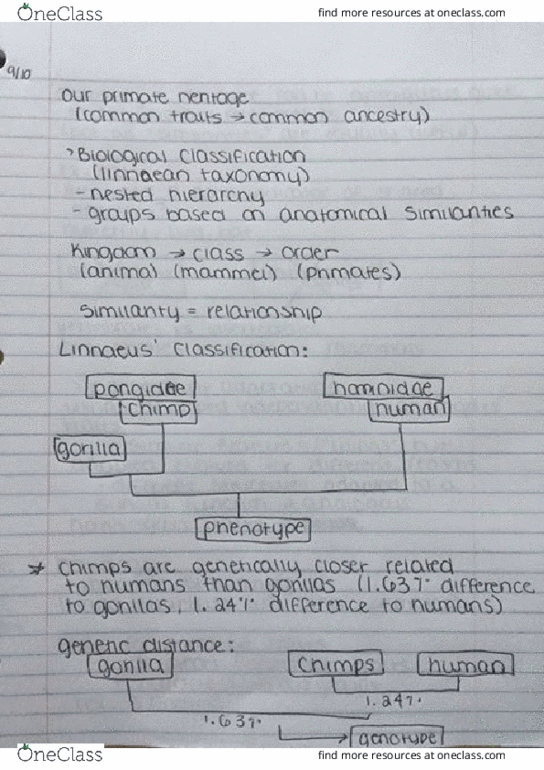 OneClass find more resources at oneclass.com
9/10
our primate heritage
(common traits → common ancestry)
>Biological classification
(linnaean taxonomy)
- nested hierarchy
- groups based on anatomical similarities
Kingdom → class → order
(animal) (mammel) (primates)
Similarity = relationship
Linnaeus' classification:
pongidae hominidae
chimp human
gorilla
phenotype
* chimps are genetically closer related
to humans than gorillas (1.63% difference
to gorillas, 1.24% difference to humans)
genetic distance:
gorilla chimps human
1.24%
1.63%
genotype
OneClass find more resources at oneclass.com